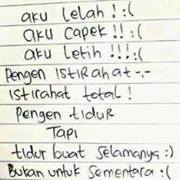 aku Lelah ! :(
aku capek !! :(
aku Letih !!! :(
Pengen istirahat -,-
istirahat total !
Pengen tidur
TAPI
tidur buat selamanya :)
Bukan untuk sementara :(